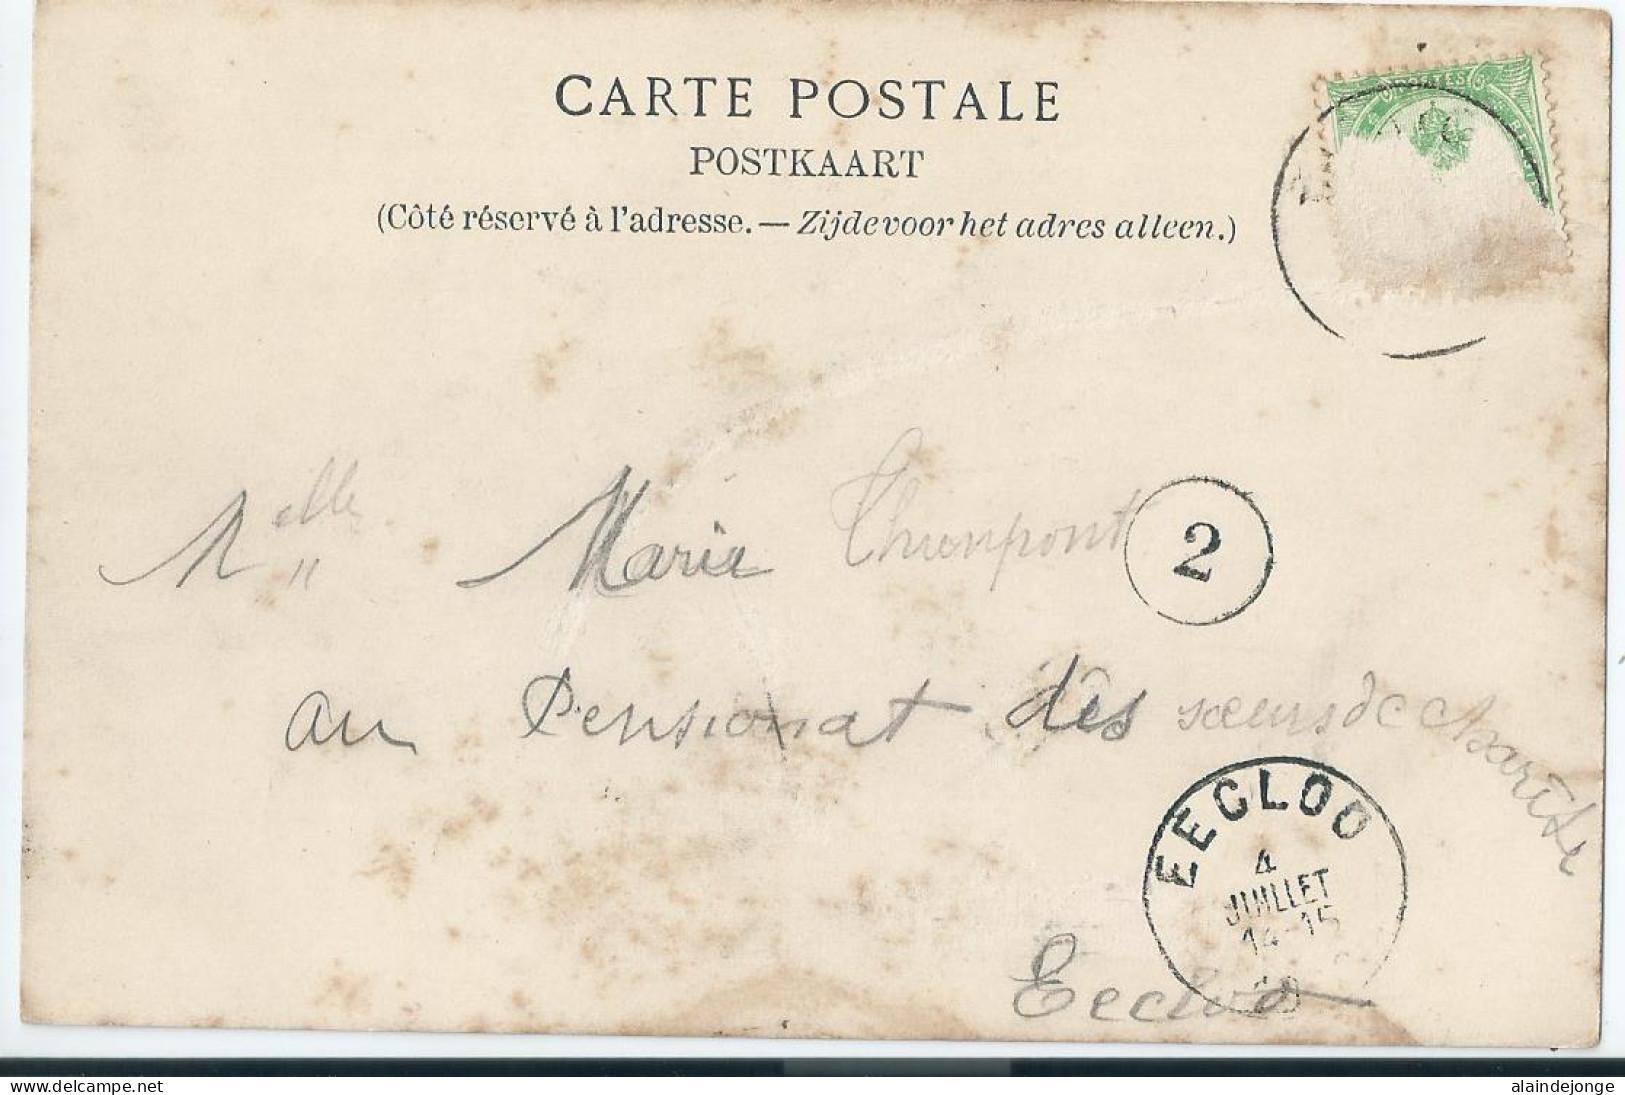 CARTE POSTALE
POSTKAART
(Côté réservé à l'adresse. — Zijde voor het adres alleen.)
POSTES
Melle Marie Thienpont
2
au Pensionat des sœurs de charité
EECLOO
4
JUILLET
14-15
Eecloo
www.delcampe.net
alaindejonge